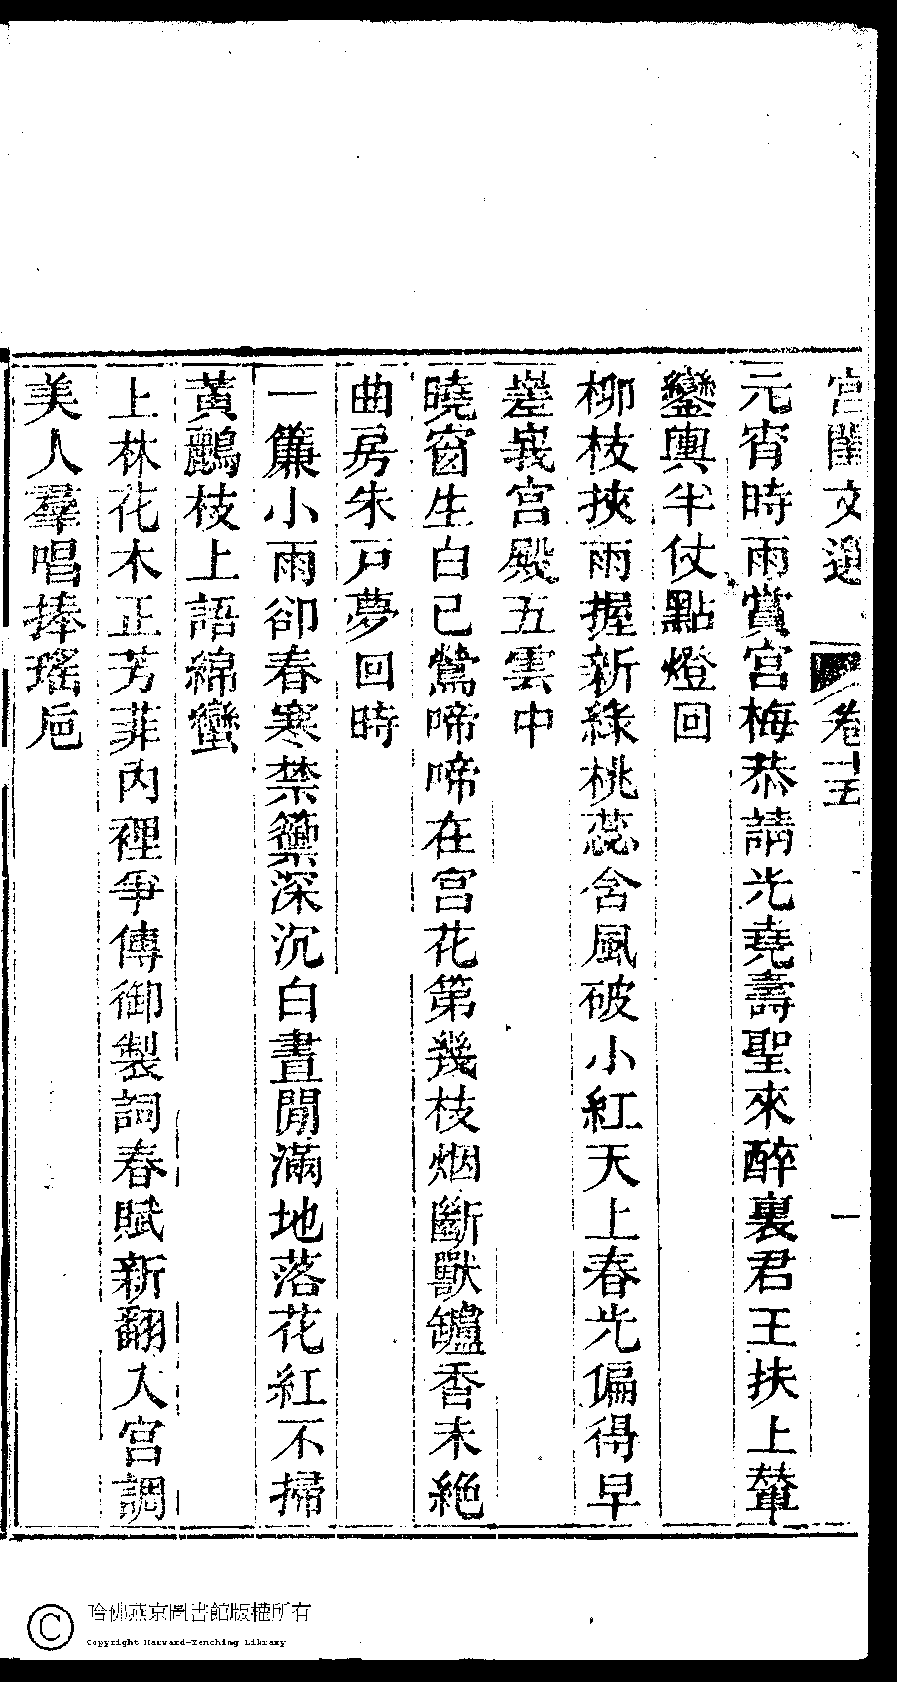 宮閨文選 卷十五 一
元宵時雨賞宮梅恭請光堯壽聖來醉裏君王扶上輦
鑾輿半仗點燈回
柳枝挾雨握新綠桃蕊含風破小紅天上春光偏得早
嵳峩宮殿五雲中
曉窗生白已鶯啼啼在宮花第幾枝烟斷獸罏香未絶
曲房朱戸夢回時
一簾小雨卻春寒禁籞深沉白晝閒滿地落花紅不掃
黃鸝枝上語綿蠻
上林花木正芳菲內裡爭傳御製詞春賦新翻入宮調
美人羣唱捧瑤巵
哈佛燕京圖書館版權所有
Copyright Harvard-Yenching Library